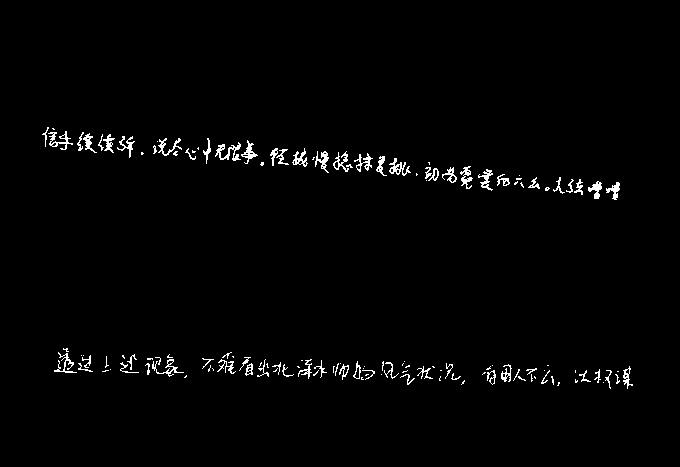 信手续续弹,说尽心中无限事。轻拢慢捻抹复挑,初为霓裳后六么。大弦嘈嘈
透过上述现象,不难看出北洋水师的风气状况,有用人不云,以权谋